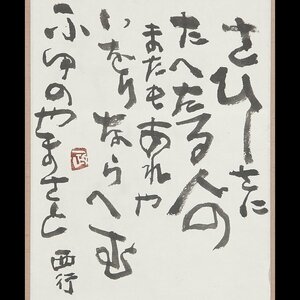 さひしさに
たへたる人の
またもあれや
いをりならへむ
冬ゆのやまさと
西行